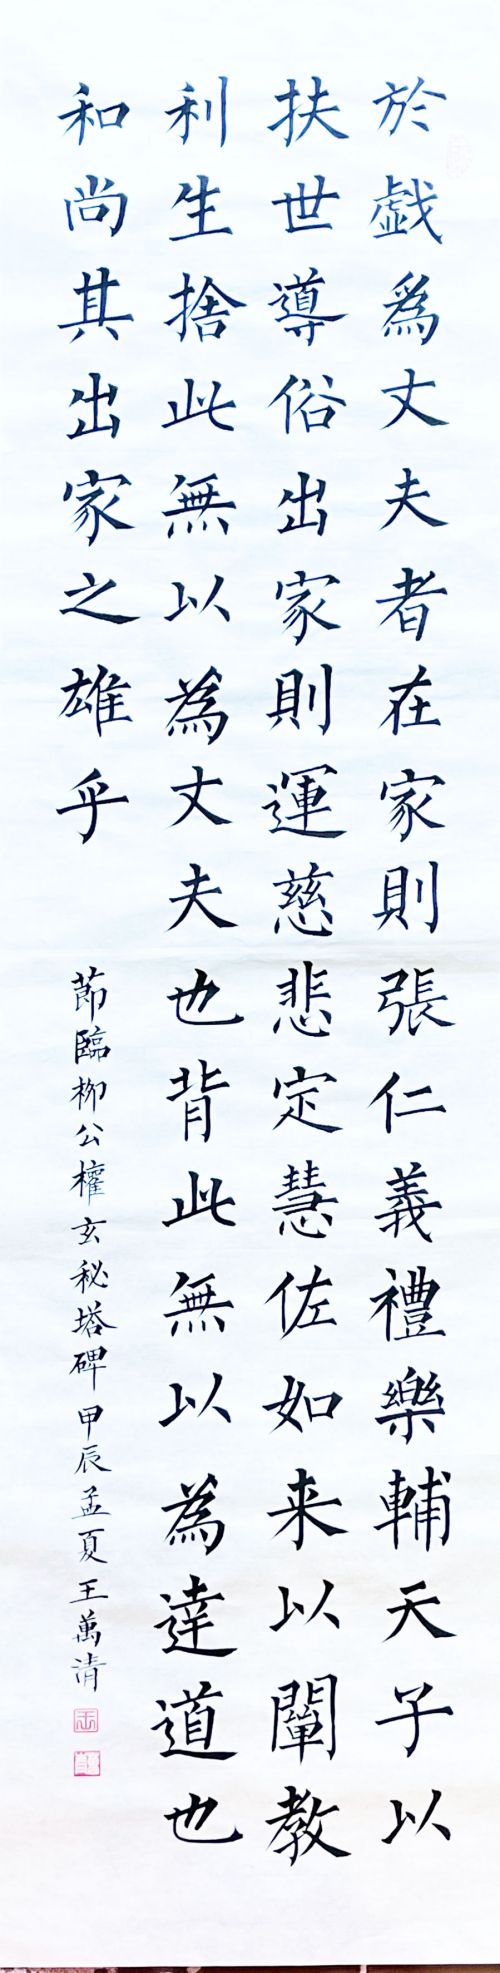 於戲爲丈夫者在家則張仁義禮樂輔天子以
扶世導俗出家則運慈悲定慧佐如来以闡教
利生捨此無以為丈夫也背此無以為達道也
和尚其出家之雄乎
莭臨柳公權玄秘塔碑甲辰孟夏王萬清